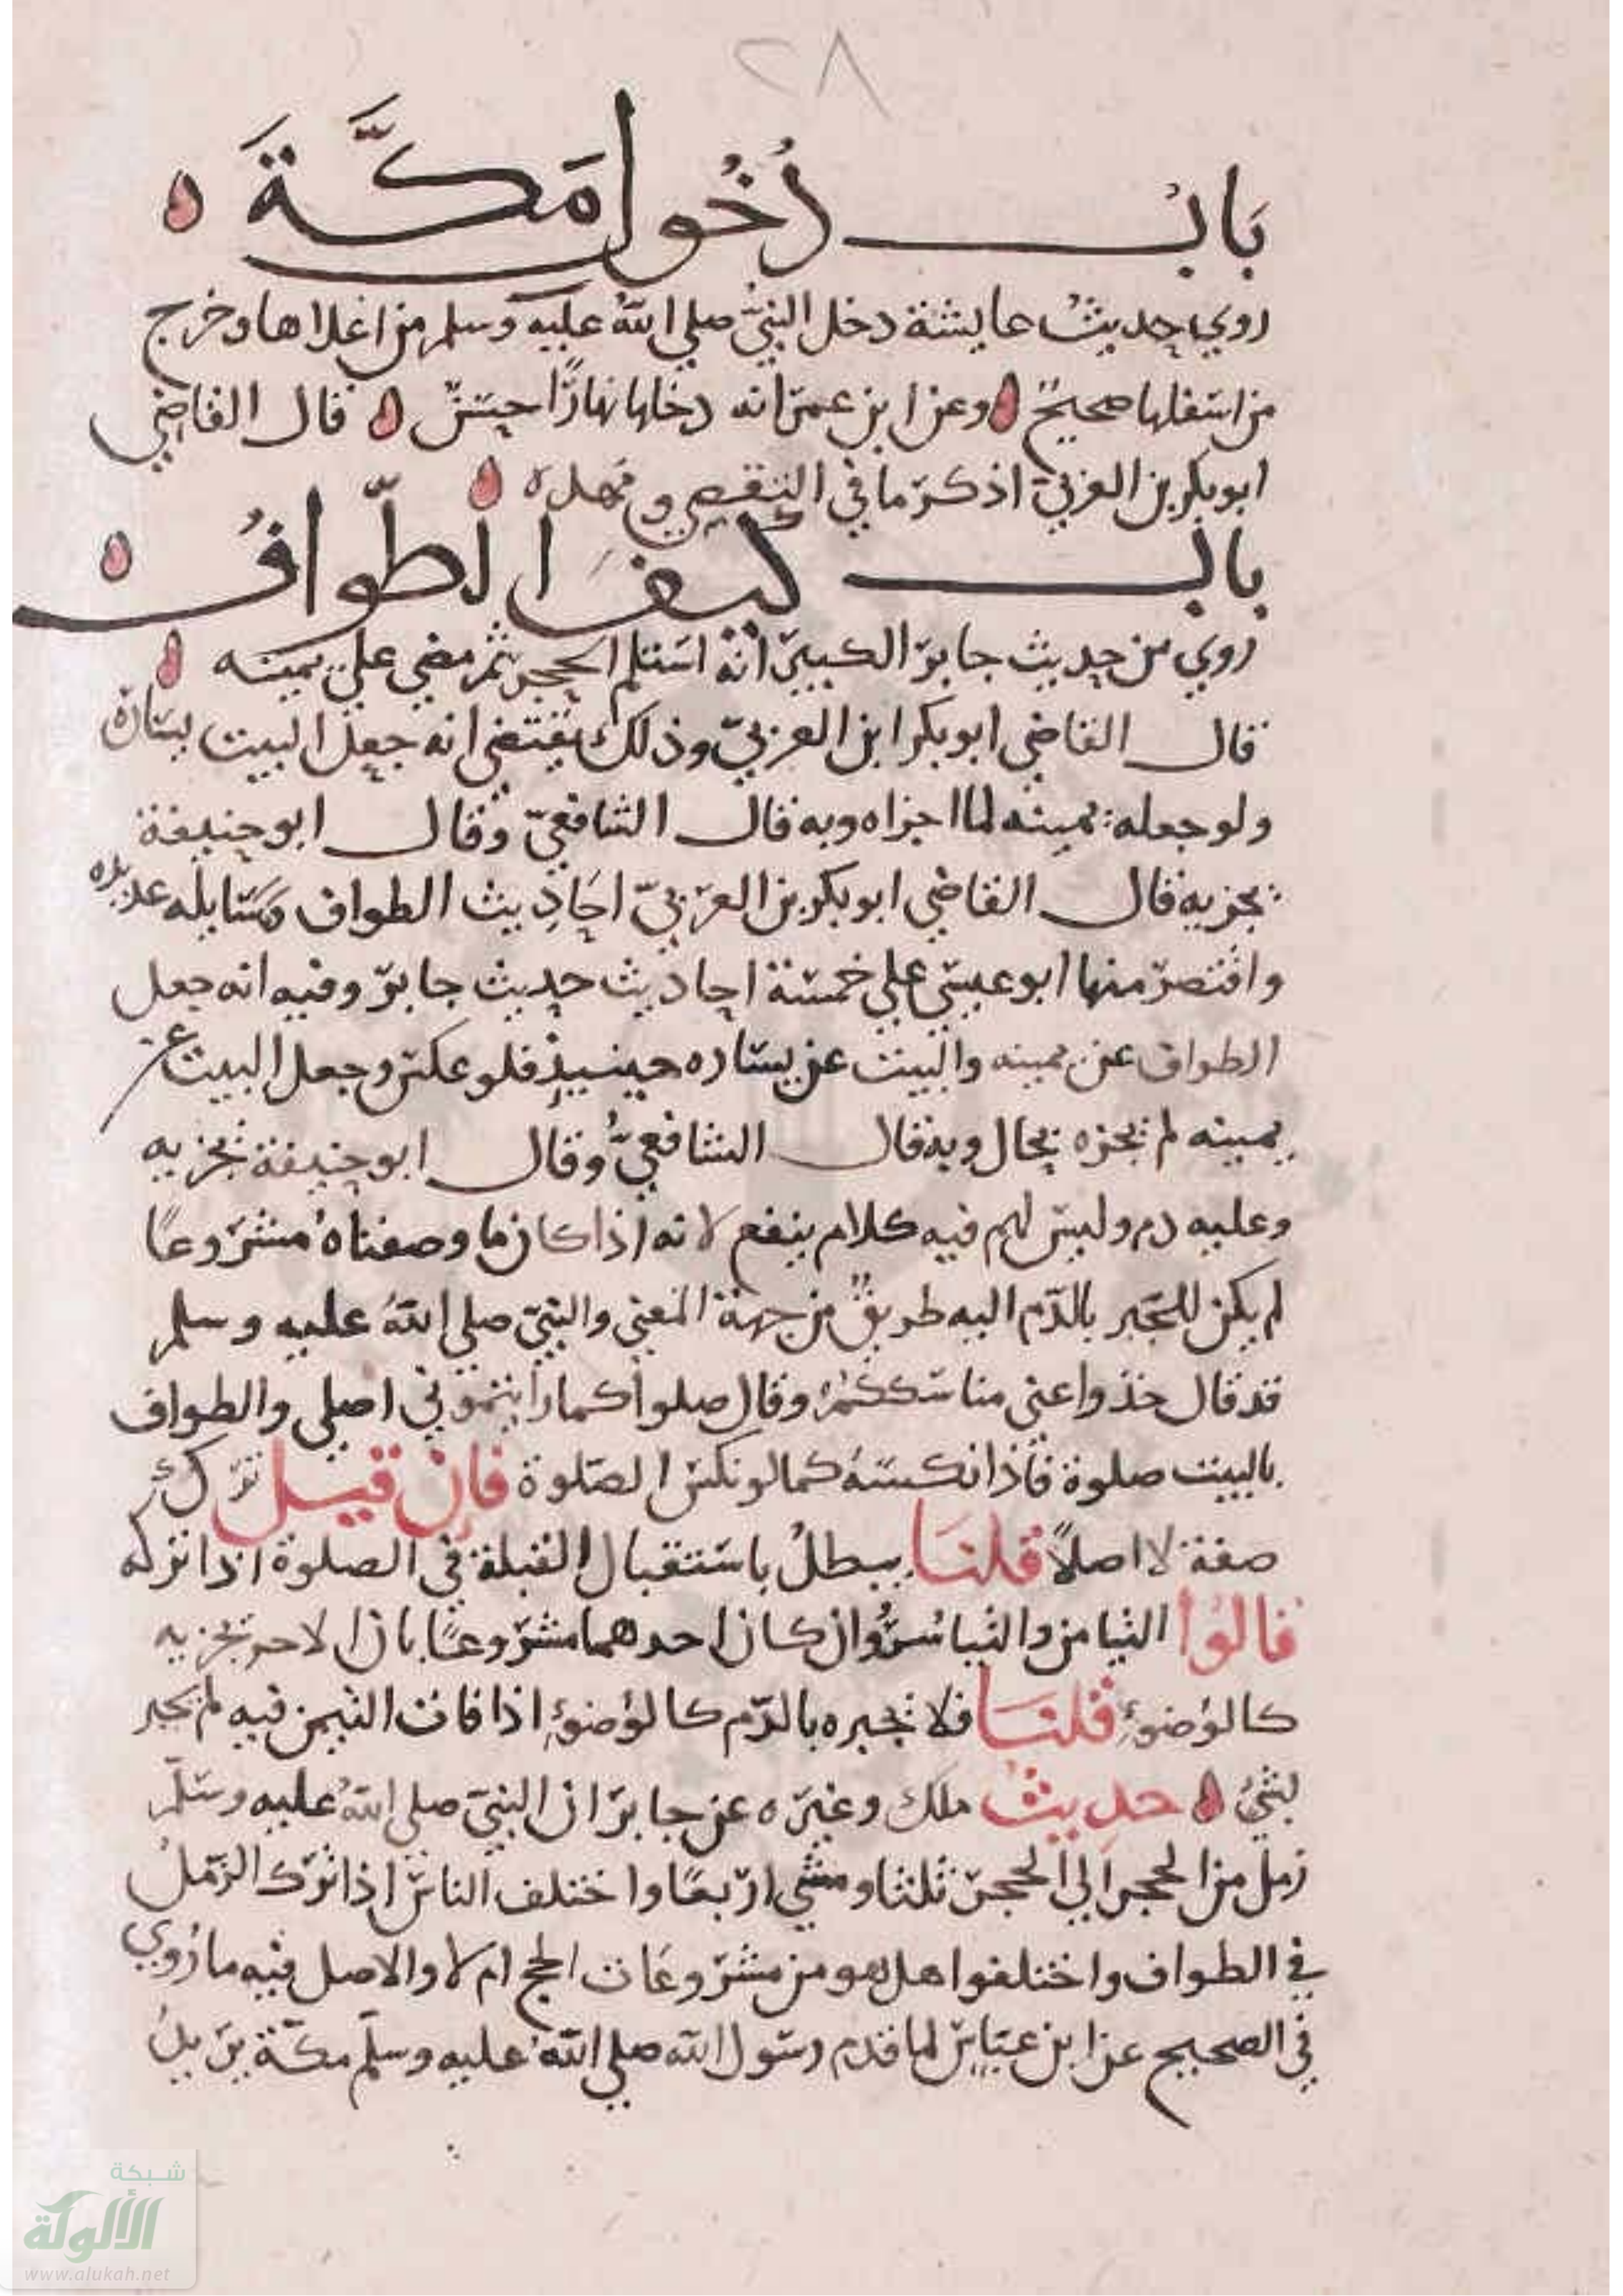 ٢٨
باب دُخُول مَكَّةَ ه
روي حديث عايشة دخل النبي صلي الله عليه وسلم من اعلاها وخرج
من اسفلها صحيح ه وعن ابن عمر انه دخلها نهارًا حسن ه قال القاضي
ابو بكر بن العربي اذكر ما في التقصي
باب كيف الطواف ه
روي من حديث جابر الكبير انه استلم الحجر ثم مضي علي يمينه ه
قال القاضي ابو بكر ابن العربي وذلك يقتضي انه جعل البيت يساره
ولو جعله يمينه لما اجزاه وبه قال الشافعي وقال ابو حنيفة
يجزيه قال القاضي ابو بكر بن العربي احاديث الطواف ومسايله عديده
واقتصر منها ابو عيسي علي خمسة احاديث حديث جابر وفيه انه جعل
الطواف عن يمينه والبيت عن يساره حينيذ فلو عكس وجعل البيت عن
يمينه لم يجزه بحال وبه قال الشافعي وقال ابو حنيفة يجزيه
وعليه دم وليس لهم فيه كلام ينفع لانه اذا كان ما وصفناه مشروعًا
لم يكن للجبر بالدم اليه طريق من جهة المعني والنبي صلي الله عليه وسلم
قد قال خذوا عني مناسككم وقال صلوا كما رايتموني اصلي والطواف
بالبيت صلوة فاذا نكسه كما لو نكس الصلوة فان قيل ترك
صفة لا اصلاً قلنا يبطل باستقبال القبلة في الصلوة اذا تركه
قالوا التيامن والتياسر وان كان احدهما مشروعًا بان الاخر يجزيه
كالوضوء قلنا فلا نجبره بالدم كالوضوء اذا فات التيمن فيه لم يجبر
بشيء ه حديث ملك وغيره عن جابر ان النبي صلي الله عليه وسلم
رمل من الحجر الي الحجر ثلثا ومشي اربعًا واختلف الناس اذا ترك الرمل
في الطواف واختلفوا هل هو من مشروعات الحج ام لا والاصل فيه ما روي
في الصحيح عن ابن عباس لما قدم رسول الله صلي الله عليه وسلم مكة يريد
شبكة
الألوكة
www.alukah.net